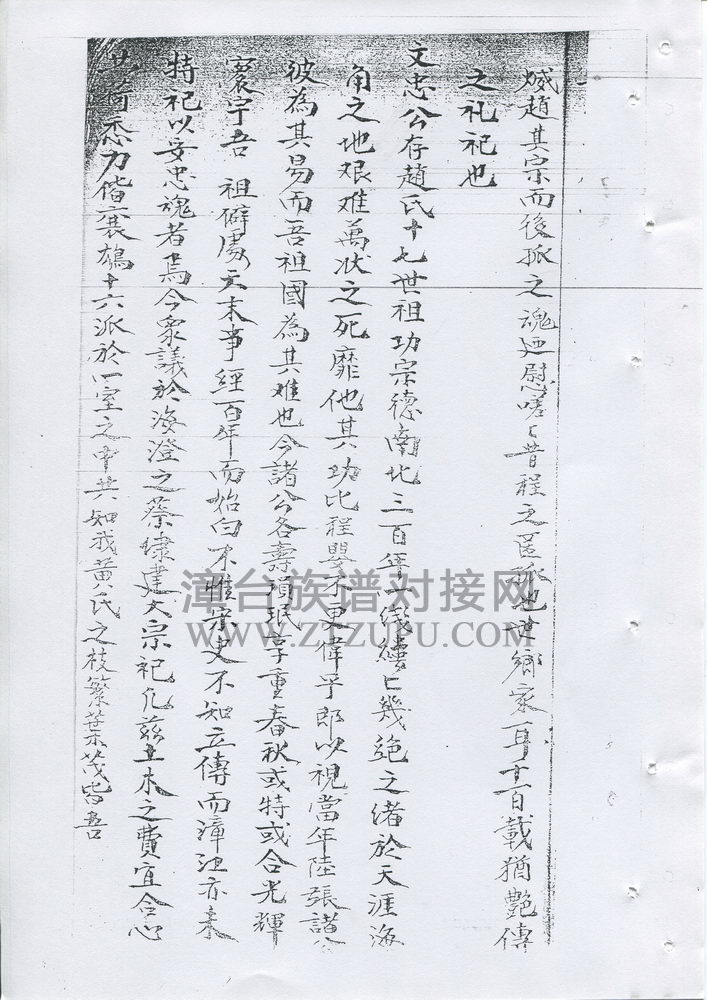 趙其宗而後孤之魂迺慰嗟嗟昔程之匿孤也世鄉家耳十一百載猶艷傳
之礼祀也
文忠公存趙氏十七世祖功宗德南北三百年一线縷匕幾絕之緒於天涯海
角之地艰难萬状之死靡他其功比程嬰不更偉乎郎以視當年陸張諸公
彼為其易而吾祖國為其难也今諸公各壽項珉享重春秋或特或合光輝
寰宇吾 祖僻處天末事經百年而始白不惟宋史不知立傳而漳江亦未
特祀以妥忠魂者焉今眾議於海澄之蔡埭建大宗祀凡茲土木之費宜合心
力 十六派於四室之中共知我黃氏之枝繁葉茂皆吾
漳台族谱对接网
WWW.ZTZUPU.COM